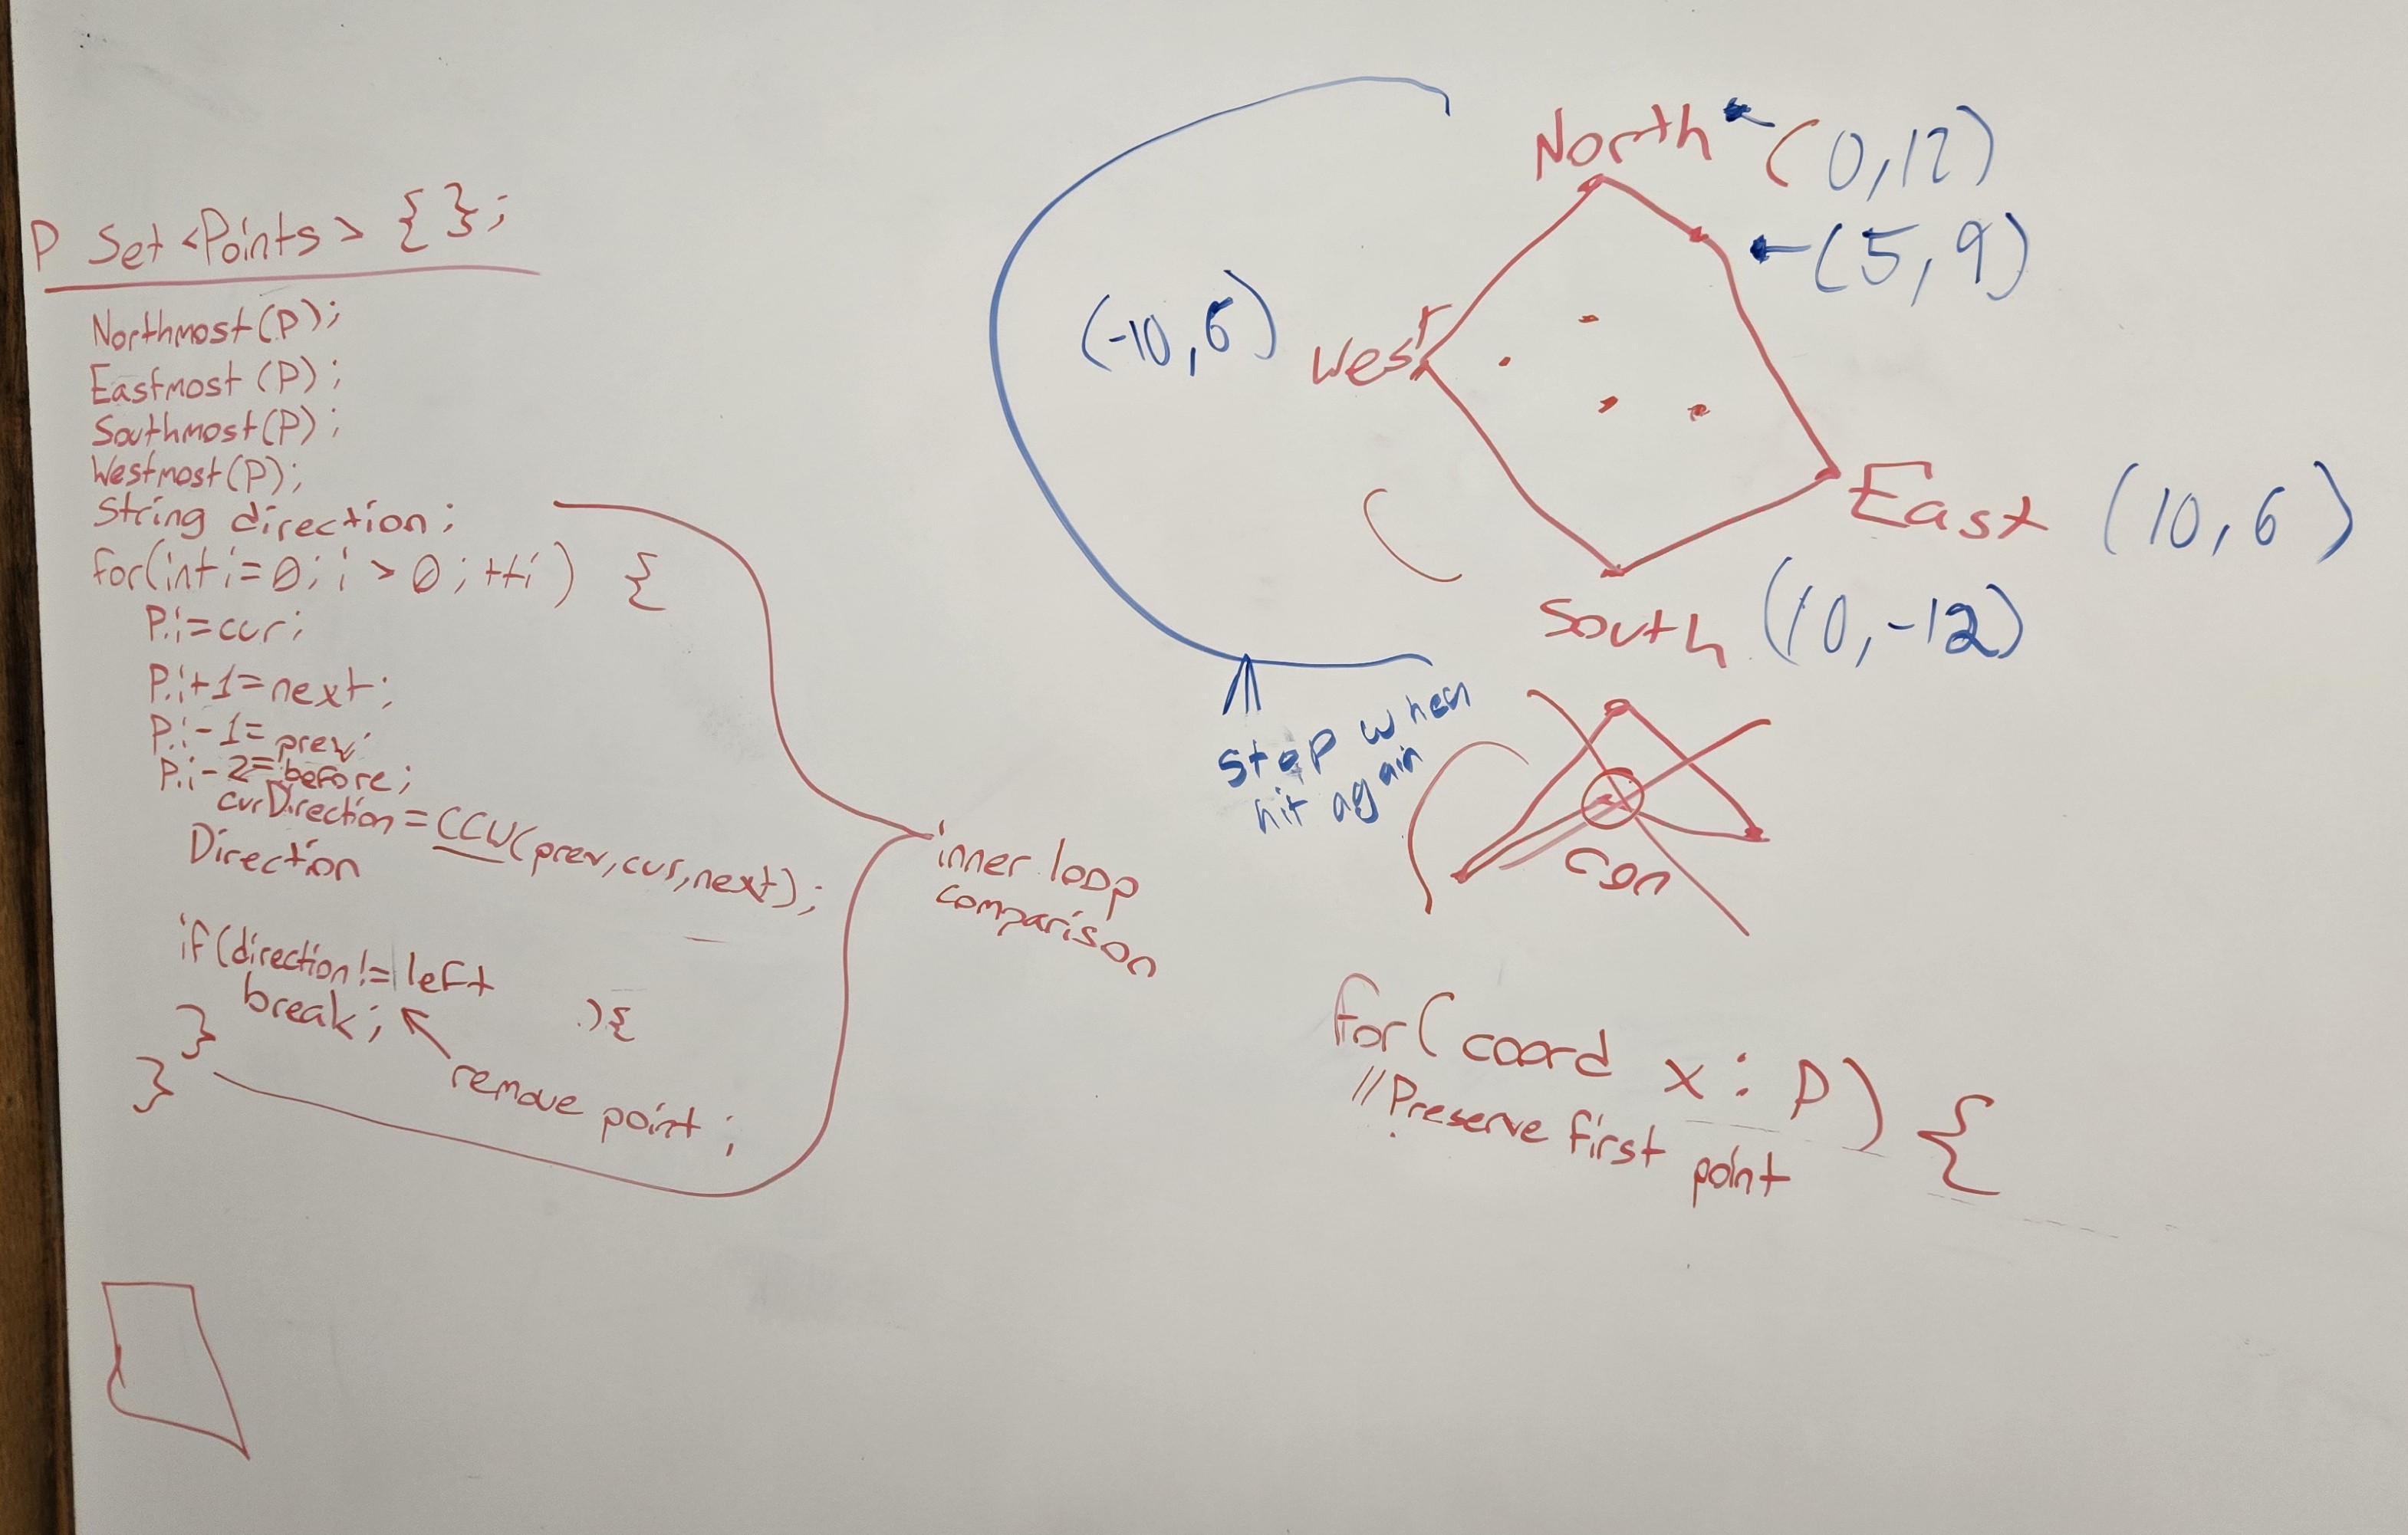 P Set <Points> { };
Northmost(P);
Eastmost(P);
Southmost(P);
Westmost(P);
String direction;
for(int i=0; i > 0; ++i) {
P.i=cur;
P.i+1=next;
P.i-1=prev;
P.i-2=before;
curDirection=CCW(prev,cur,next);
Direction
if(direction!=left
break; ){
}
remove point;
}
inner loop
comparison
North (0,12)
(5,9)
(-10,6) West
East (10,6)
South (10,-12)
Stop when
hit again
for(coord x : P) {
//Preserve first point